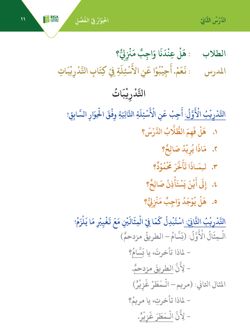 الدَّرْسُ الثَّانِي
الحِوَارُ فِي الفَصْلِ
١١
الطلاب : هَلْ عِنْدَنَا وَاجِبٌ مَنْزِلِيٌّ؟
المدرس : نَعَمْ، أَجِيبُوا عَنِ الْأَسْئِلَةِ فِي كِتَابِ التَّدْرِيبَاتِ
التَّدْرِيبَاتُ
التَّدْرِيبُ الْأَوَّلُ: أَجِبْ عَنِ الْأَسْئِلَةِ التَّالِيَةِ وِفْقَ الْحِوَارِ السَّابِقِ:
١- هَلْ فَهِمَ الطُّلَّابُ الدَّرْسَ؟
٢- مَاذَا يُرِيدُ صَالِحٌ؟
٣- لِمَاذَا تَأَخَّرَ مَحْمُودٌ؟
٤- إِلَى أَيْنَ يَسْتَأْذِنُ صَالِحٌ؟
٥- هَلْ يُوْجَدُ وَاجِبٌ مَنْزِلِيٌّ؟
التَّدْرِيبُ الثَّانِي: اسْتَبْدِلْ كَمَا فِي الْمِثَالَيْنِ مَعَ تَغْيِيرِ مَا يَلْزَمُ:
الْمِثَالُ الْأَوَّلُ: (بَسَّامٌ - الطريقُ مزدحمٌ)
- لماذا تأخرتَ، يا بَسَّامُ؟
- لِأَنَّ الطريقَ مزدحمٌ.
المثال الثاني: (مريم - الْمَطَرُ غَزِيْرٌ)
- لماذا تأخرتِ، يا مريمُ؟
- لِأَنَّ الْمَطَرَ غَزِيْرٌ.